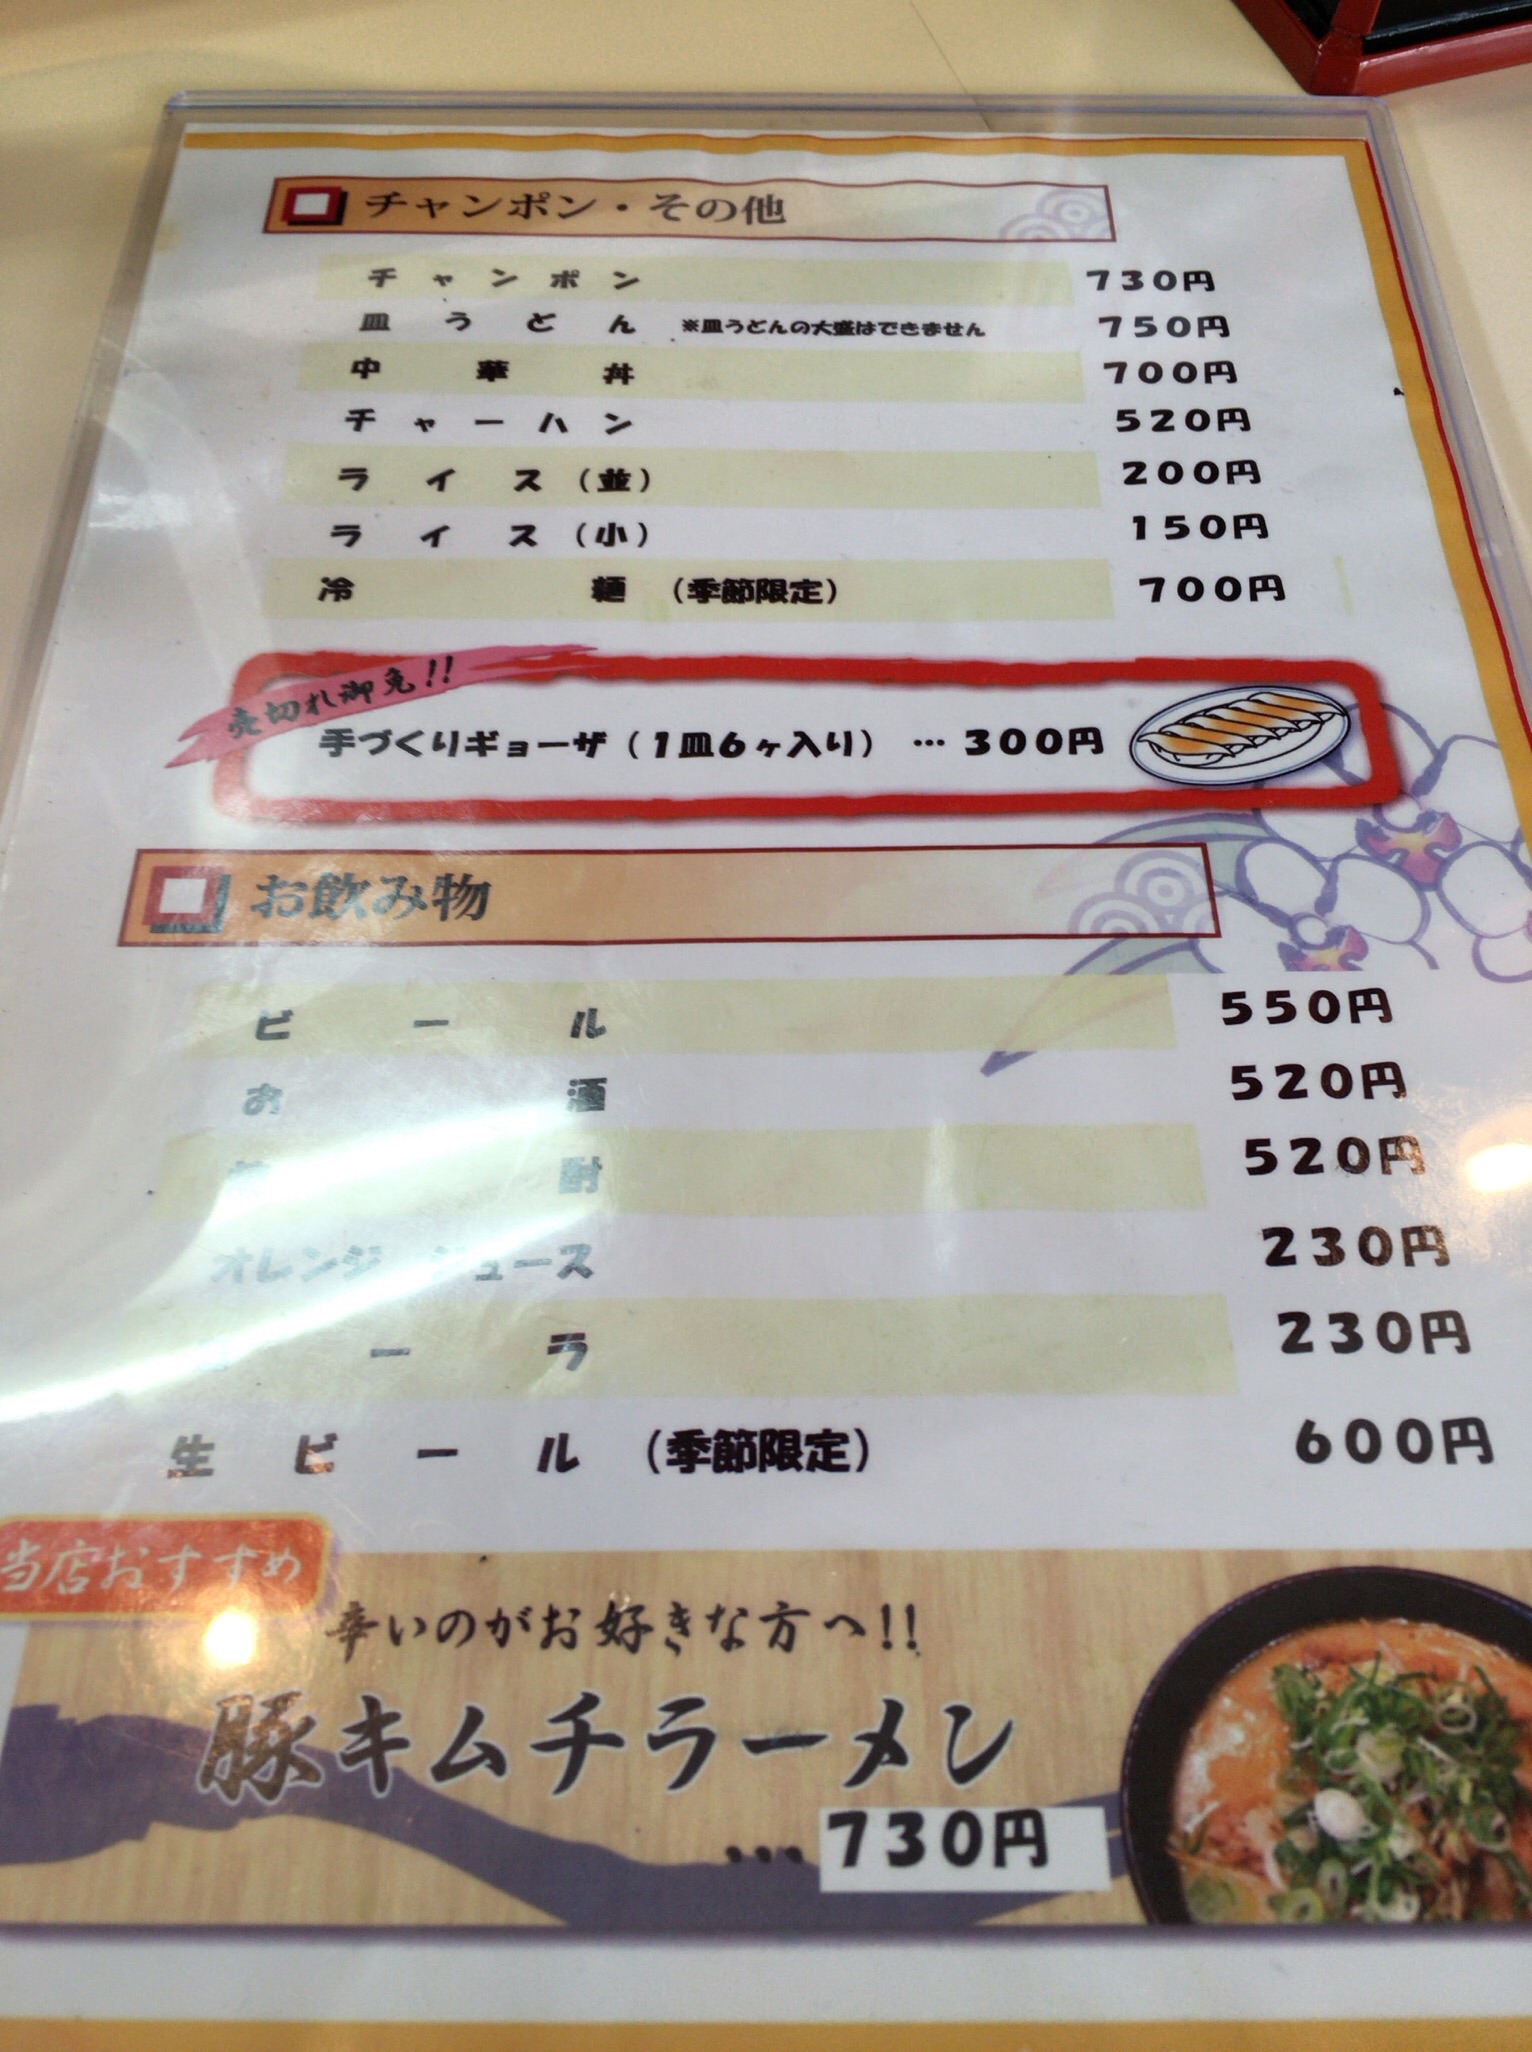 チャンポン・その他
チャンポン 730円
皿うどん ※皿うどんの大盛はできません 750円
中華丼 700円
チャーハン 520円
ライス(並) 200円
ライス(小) 150円
冷麺 (季節限定) 700円
売切れ御免!!
手づくりギョーザ(1皿6ヶ入り) … 300円
お飲み物
ビール 550円
お酒 520円
酎 520円
オレンジジュース 230円
ーラ 230円
生ビール (季節限定) 600円
当店おすすめ
辛いのがお好きな方へ!!
豚キムチラーメン
…730円